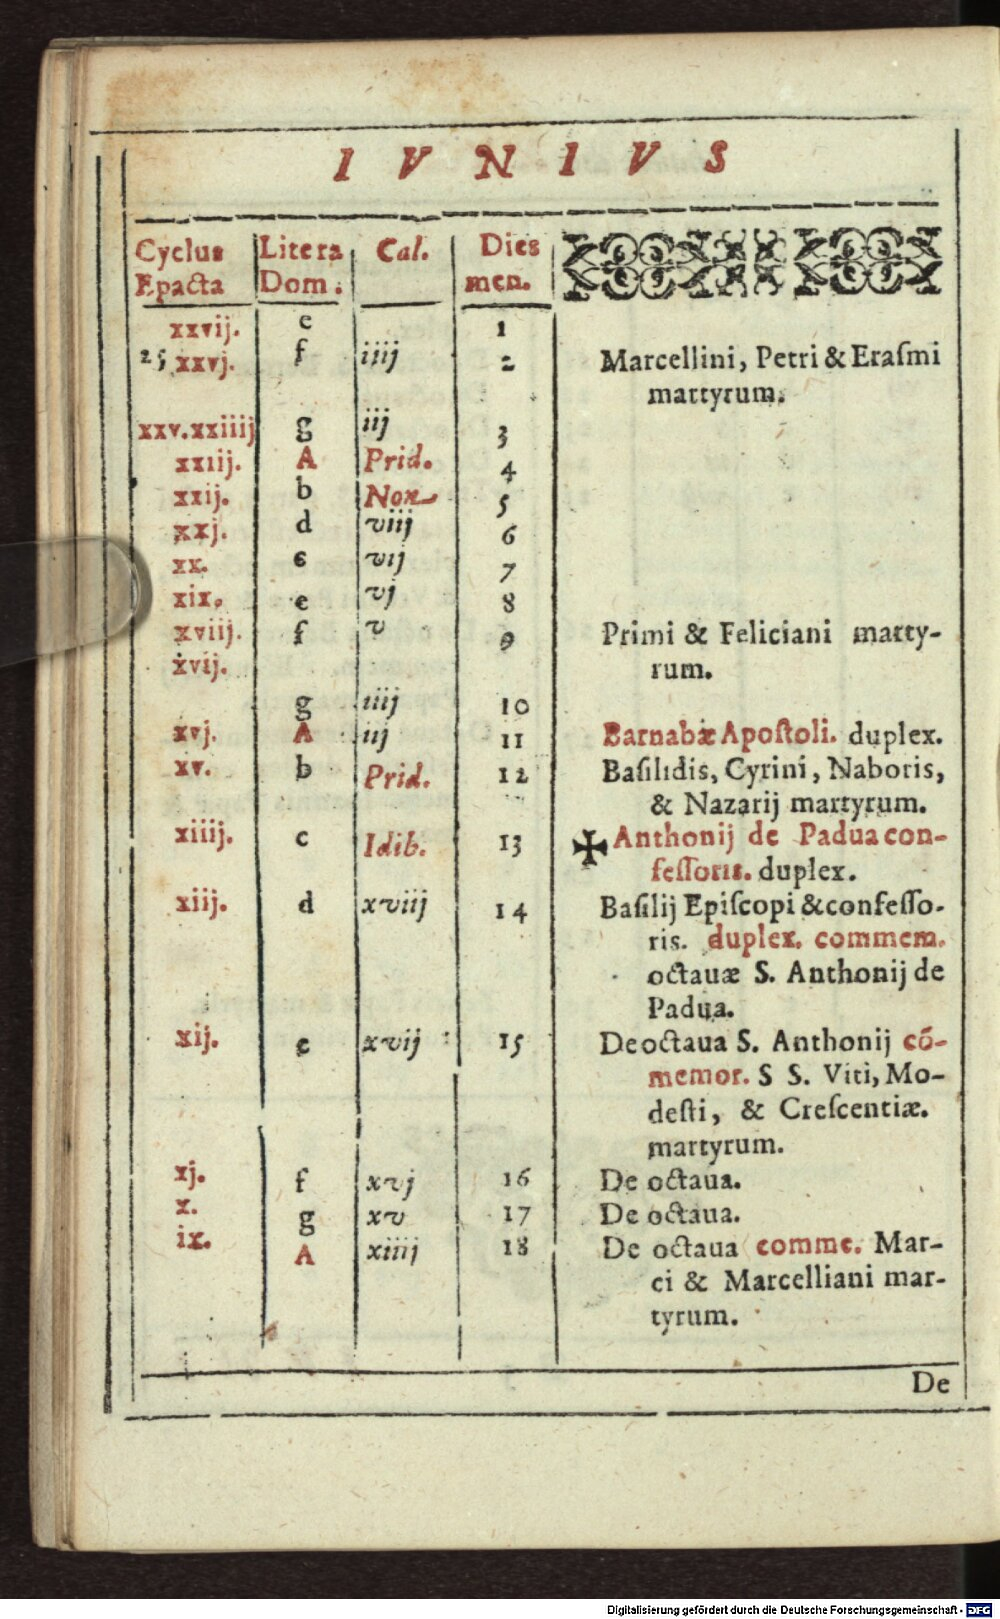 IVNIVS
Cyclus Litera Cal. Dies
Epacta Dom. men.
xxvij. e 1
25 xxvj. f iiij 2 Marcellini, Petri & Eraſmi
martyrum.
xxv.xxiiij g iij 3
xxiij. A Prid. 4
xxij. b Non. 5
xxj. d viij 6
xx. e vij 7
xix. e vj 8
xviij. f v 9 Primi & Feliciani marty-
xvij. rum.
g iiij 10
xvj. A iij 11 Barnabæ Apoſtoli. duplex.
xv. b Prid. 12 Baſilidis, Cyrini, Naboris,
& Nazarij martyrum.
xiiij. c Idib. 13 ✠ Anthonij de Padua con-
feſſoris. duplex.
xiij. d xviij 14 Baſilij Epiſcopi & confeſſo-
ris. duplex. commem.
octauæ S. Anthonij de
Padua.
xij. e xvij 15 De octaua S. Anthonij cō-
memor. S S. Viti, Mo-
deſti, & Creſcentiæ.
martyrum.
xj. f xvj 16 De octaua.
x. g xv 17 De octaua.
ix. A xiiij 18 De octaua comme. Mar-
ci & Marcelliani mar-
tyrum.
De
Digitalisierung gefördert durch die Deutsche Forschungsgemeinschaft - DFG